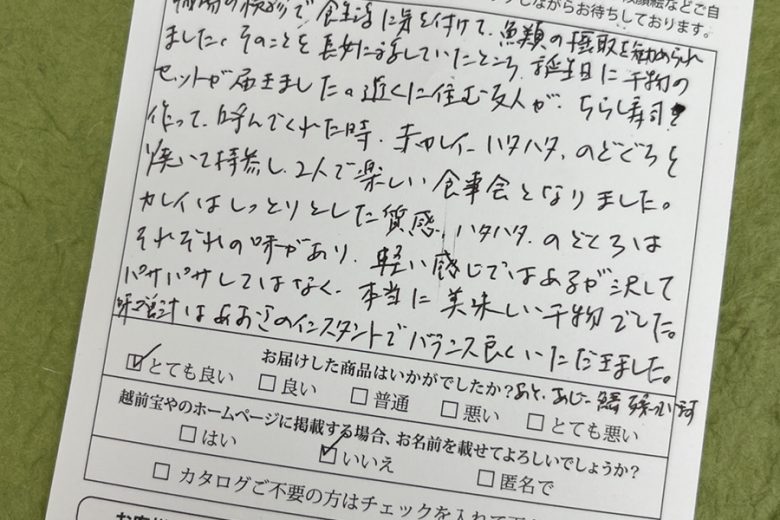 顔絵などご自
しながらお待ちしております。
検診で、食生活に気を付けて、魚類の摂取を勧められ
ました。そのことを長女に話していたところ、誕生日に干物の
セットが届きました。近くに住む友人が、ちらし寿司を
作って、呼んでくれた時、寺カレイ、ハタハタ、のどぐろを
焼いて持参し、2人で楽しい食事会となりました。
カレイはしっとりとした質感、ハタハタ、のどぐろは
それぞれの味があり、軽い感じではあるが決して
パサパサしてはなく、本当に美味しい干物でした。
味噌汁はあおさのインスタントでバランス良くいただきました。
お届けした商品はいかがでしたか?あと、あじ、
とても良い 良い 普通 悪い とても悪い
越前宝やのホームページに掲載する場合、お名前を載せてよろしいでしょうか?
はい いいえ 匿名で
カタログご不要の方はチェックを入れて